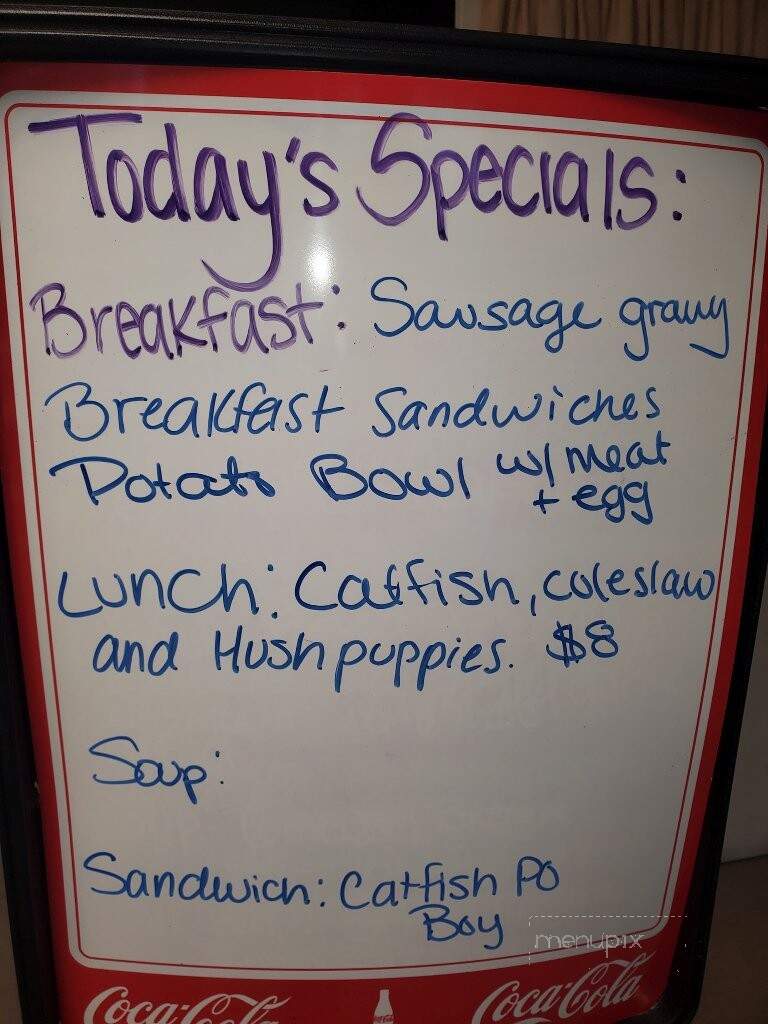 Today's Specials:
Breakfast: Sausage gravy
Breakfast Sandwiches
Potato Bowl w/ meat
+ egg
Lunch: Catfish, coleslaw
and Hushpuppies. $8
Soup:
Sandwich: Catfish PO
Boy
menupix
Coca-Cola Coca-Cola